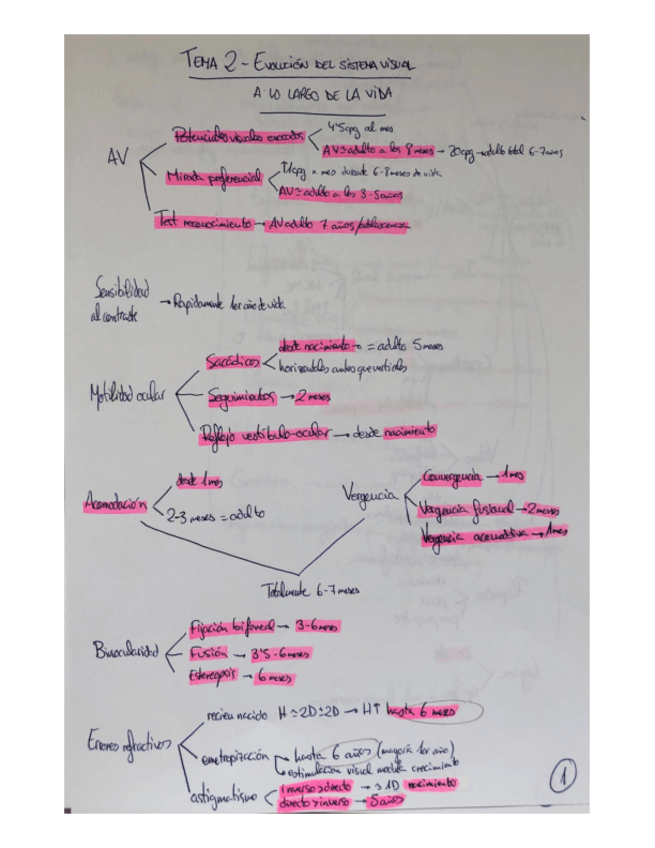 TEMA 2 - EVOLUCIÓN DEL SISTEMA VISUAL
A LO LARGO DE LA VIDA
AV
Potenciales visuales evocados
4'5cpg al mes
AV≃adulto a los 8 meses → 30cpg → adulto total 6-7 años
Mirada preferencial
↑1cpg x mes durante 6-8 meses de vida
AV≃adulto a los 3-5 años
Test reconocimiento → AV adulto 7 años/adolescencia
Sensibilidad
al contraste
→ Rápidamente 1er año de vida
Motilidad ocular
Sacádicos
desde nacimiento → = adulto 5 meses
horizontales antes que verticales
Seguimientos → 2 meses
Reflejo vestíbulo-ocular → desde nacimiento
Acomodación
desde 1 mes
2-3 meses = adulto
Vergencia
Convergencia → 1 mes
Vergencia fusional → 2 meses
Vergencia acomodativa → 1 mes
Totalmente 6-7 meses
Binocularidad
Fijación bifoveal → 3-6 meses
Fusión → 3'5-6 meses
Estereopsis → 6 meses
Errores refractivos
recien nacido H ≃ 2D±2D → H↑ hasta 6 meses
emetropización
hasta 6 años (mayoría 1er año)
estimulación visual modula crecimiento
astigmatismo
inverso>directo → ≥1D nacimiento
directo>inverso → 5 años
1